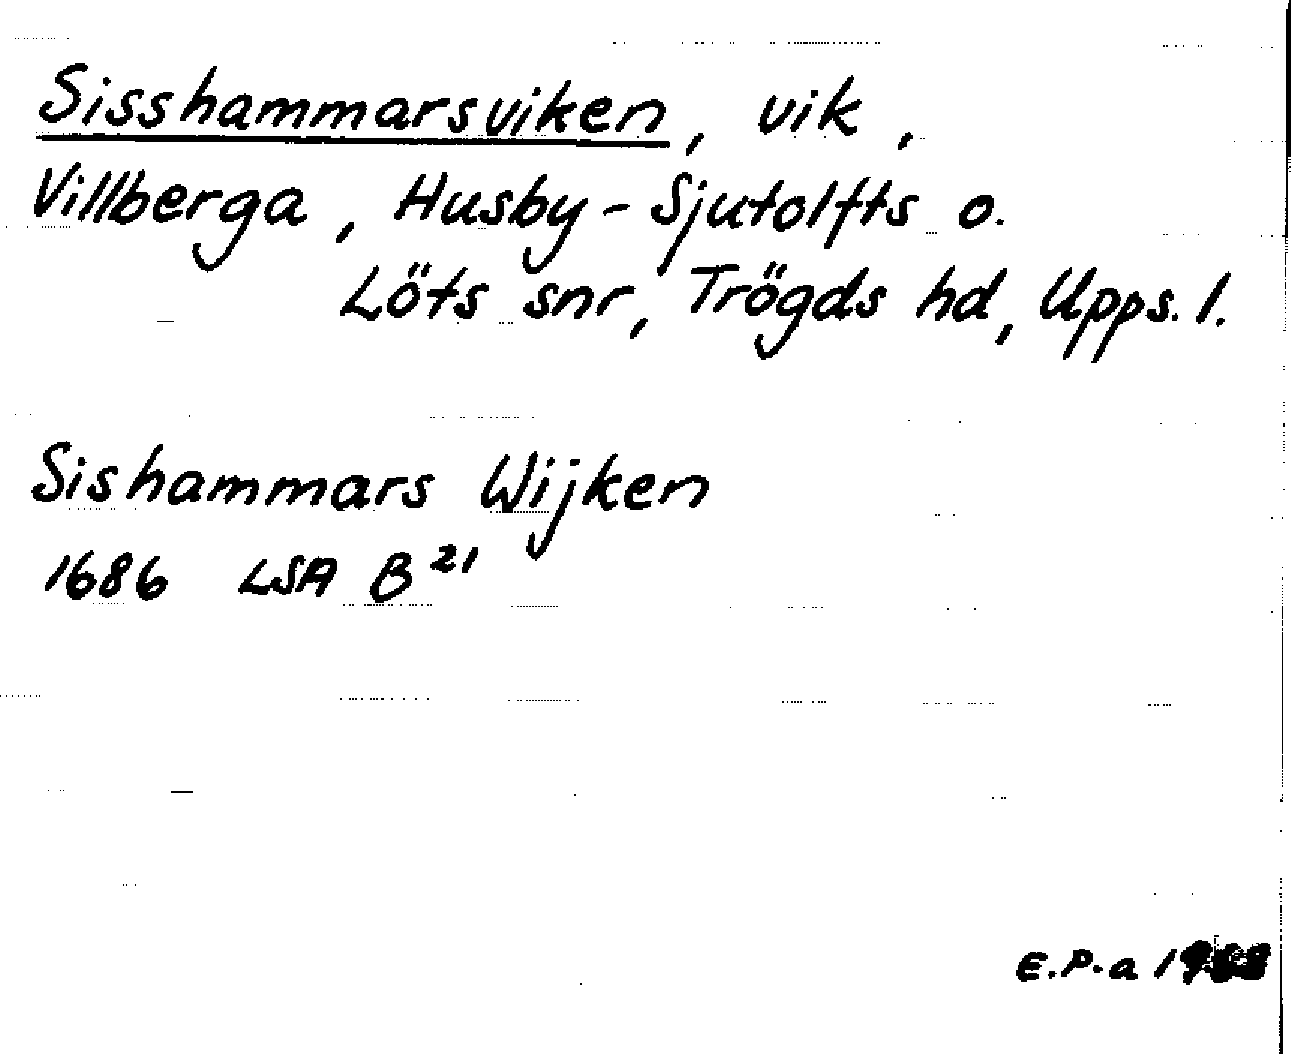 Sisshammarsviken, vik,
Villberga, Husby-Sjutolfts o.
Löts snr, Trögds hd, Upps. l.
Sishammars Wijken
1686 LSA B 21
E.P-a